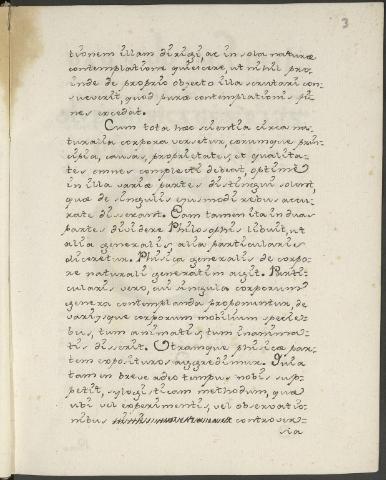 3
tionem illam dirigi, ac in sola naturæ
contemplatione quiescere, ut nihil pro-
inde de proprio objecto illa scrutari con-
sueverit, quod puræ contemplationis fi-
nes excedat.
Cum tota hæc scientia circa na-
turalia corpora versetur, eorumque prin-
cipia, causas, proprietates, et qualita-
tes omnes complecti debeat, optime
in illa variæ partes distingui solent,
quæ de singulis ejusmodi rebus accu-
rate disserant. Eam tamen ita in duas
partes dividere Philosophis libuit, ut
alia generalis, alia particularis
diceretur. Phisica generalis de corpo-
re naturali generatim agit. Parti-
cularis vero, cui singula corporum
genera contemplanda proponuntur, de
variisque corporum mobilium specie-
bus, tum animatis, tum inanima-
tis disserit. Utramque phisicæ par-
tem exposituros aggredimur.
tam en breve adeo tempus nobis sup-
petit, sylogisticam methodum, quæ
ubi vel experimentis, vel observatio-
nibus controver-
sia